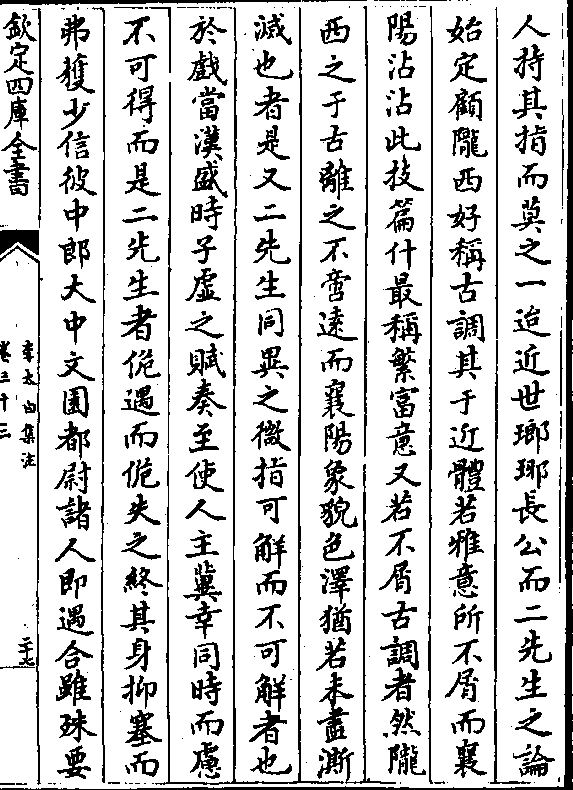 人持其指而莫之一迨近世瑯琊長公而二先生之論
始定顧隴西好稱古調其于近體若雅意所不屑而襄
陽沾沾此技篇什最稱繁富意又若不屑古調者然隴
西之于古離之不啻遠而襄陽象貌色澤猶若未盡澌
滅也者是又二先生同異之微指可觧而不可觧者也
於戲當漢盛時子虛之賦奏至使人主冀幸同時而慮
不可得而是二先生者佹遇而佹失之終其身抑塞而
弗獲少信彼中郎大中文園都尉諸人即遇合雖殊要
欽定四庫全書
李太白集注
卷三十三
二十七